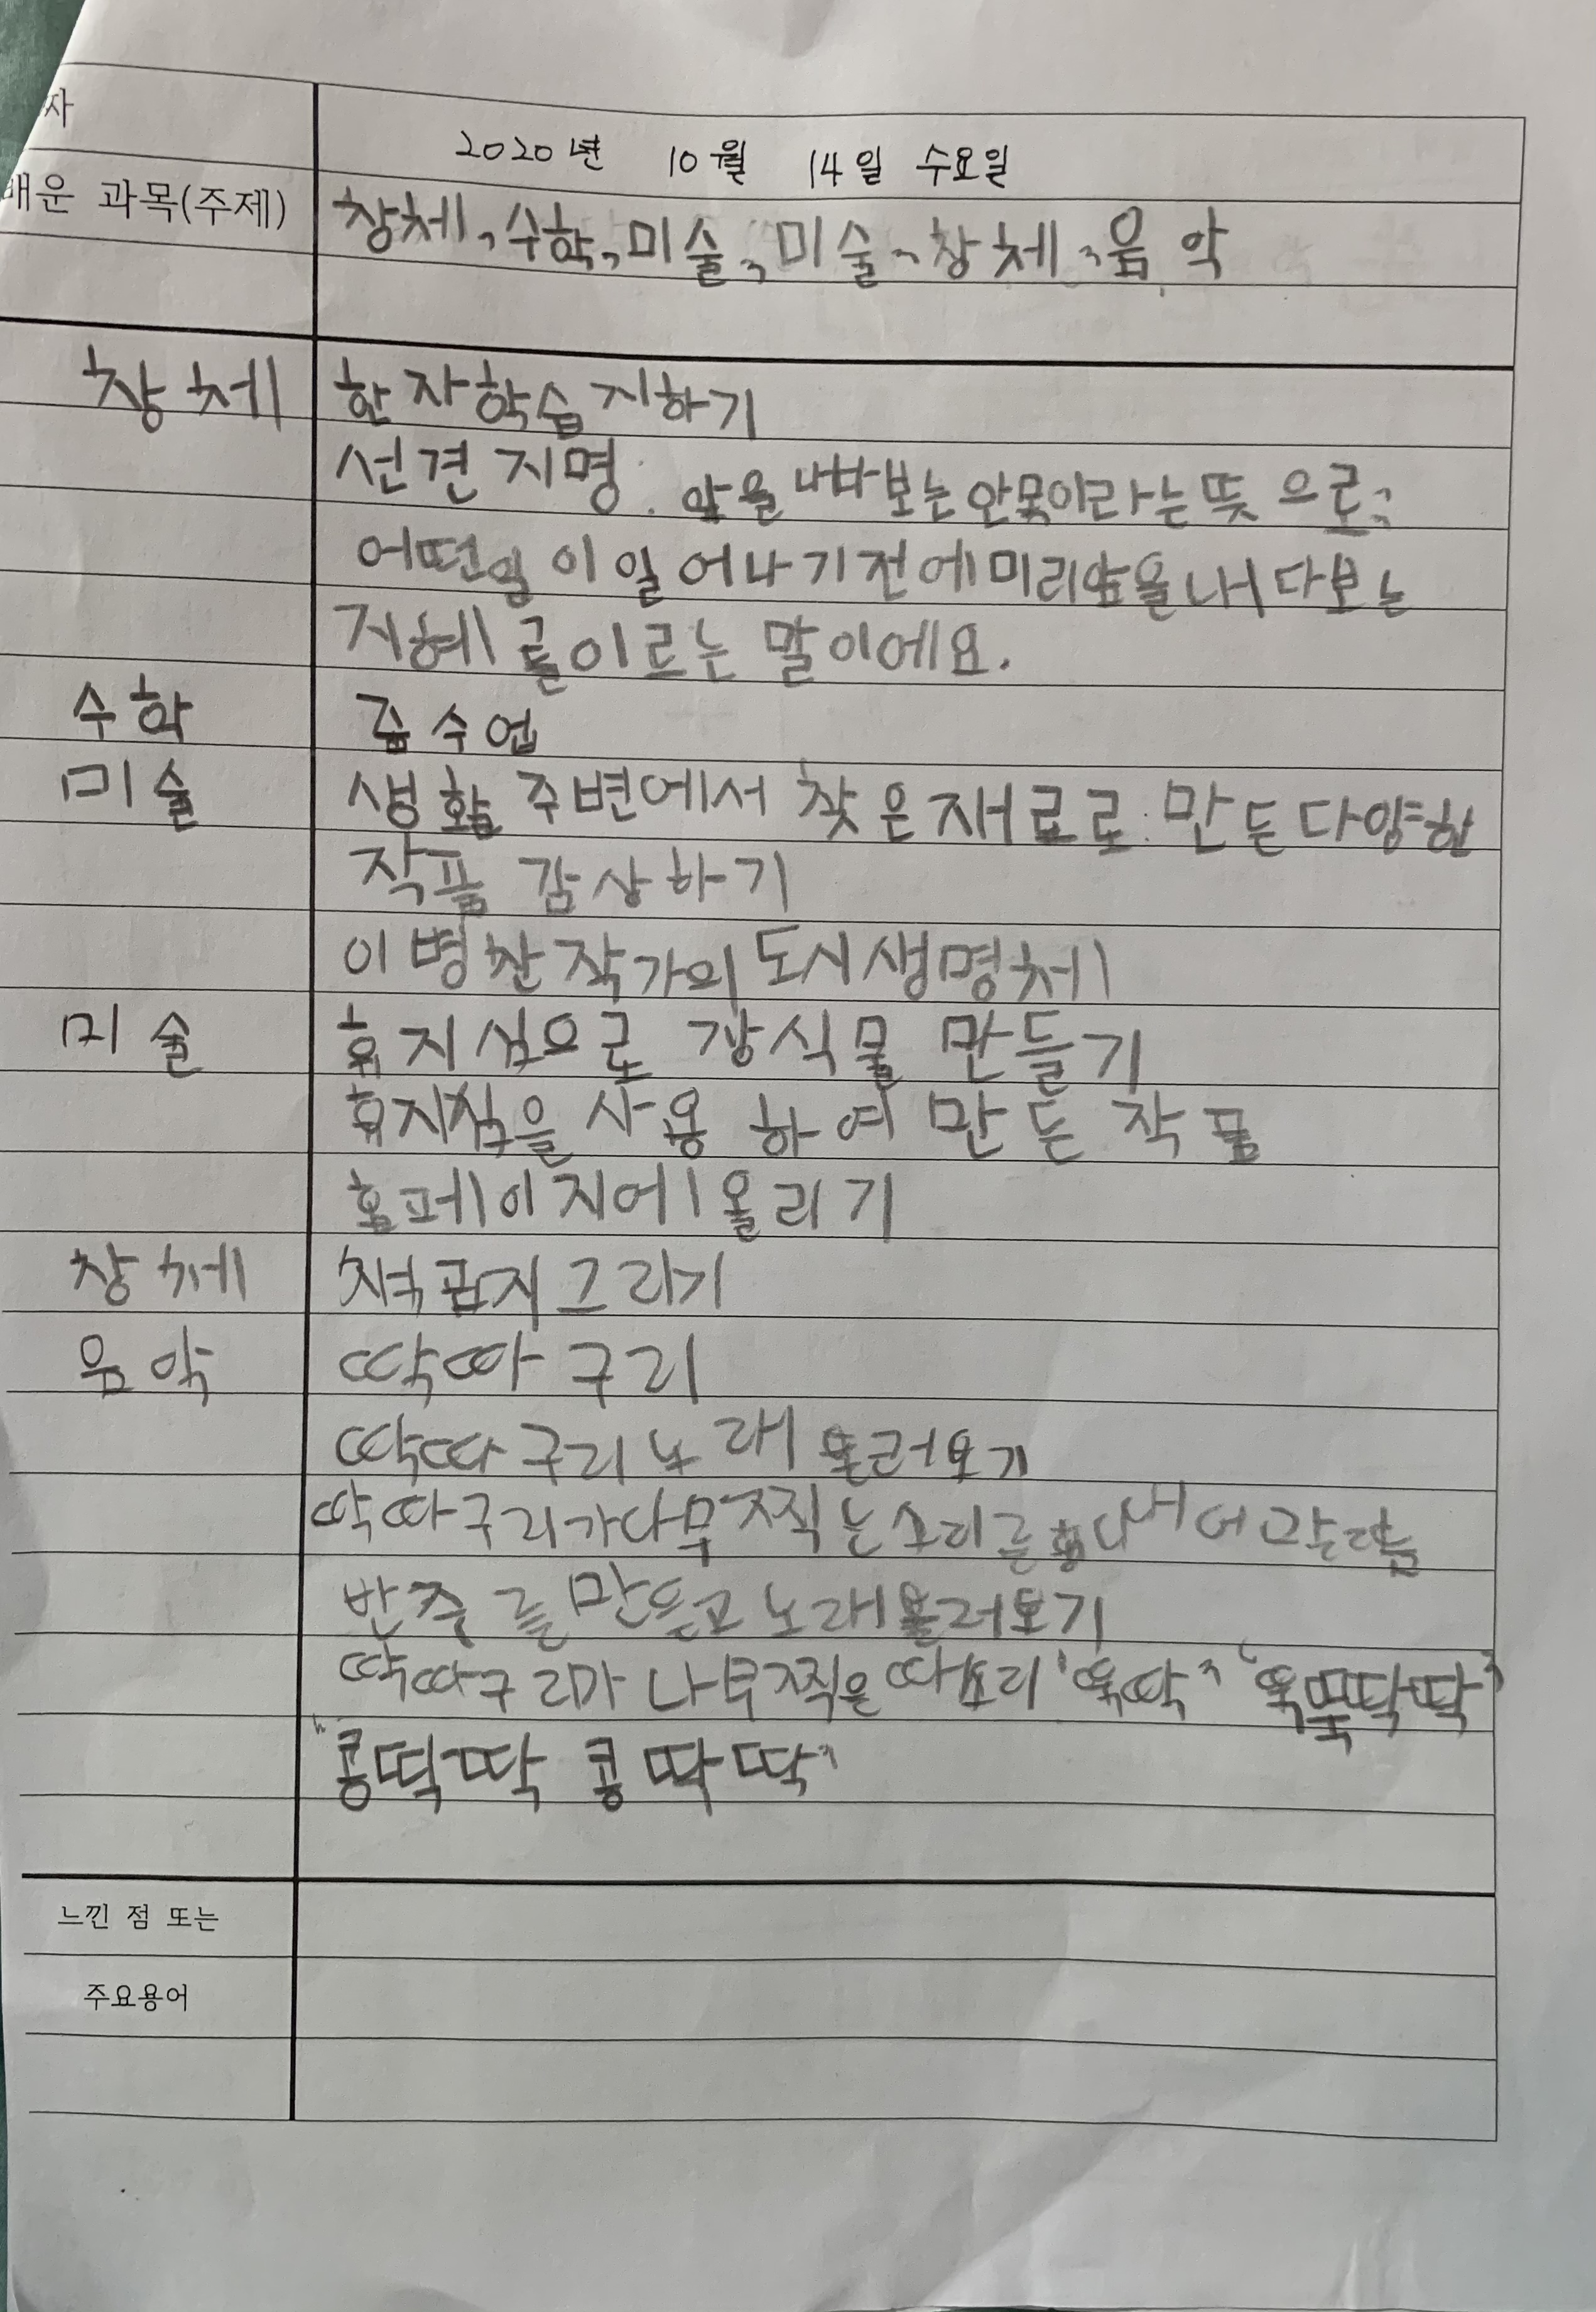 자
2020년 10월 14일 수요일
배운 과목(주제)
창체, 수학, 미술, 미술, 창체, 음악
창체 한자학습지하기
선견지명. 앞을 내다보는 안목이라는 뜻으로,
어떤일이 일어나기 전에 미리 앞을 내다보는
지혜를 이르는 말이에요.
수학 줌수업
미술 생활 주변에서 찾은 재료로 만든 다양한
작품 감상하기
이병찬 작가의 도시생명체
미술 휴지심으로 장식물 만들기
휴지심을 사용하여 만든 작품
홈페이지에 올리기
창체 그리기
음악 딱따구리
딱따구리 노래 불러보기
딱따구리가 찍는 소리를 내어
반주를 만들고 노래 불러보기
딱따구리가 나무 찍을 때 소리 '똑딱' '똑똑딱딱'
"콩딱딱 콩딱딱"
느낀 점 또는
주요용어